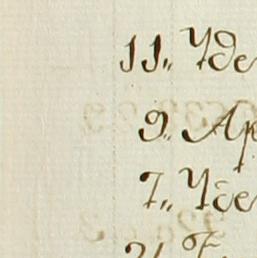 11„ Yde
9„ Ap
7„ Yde